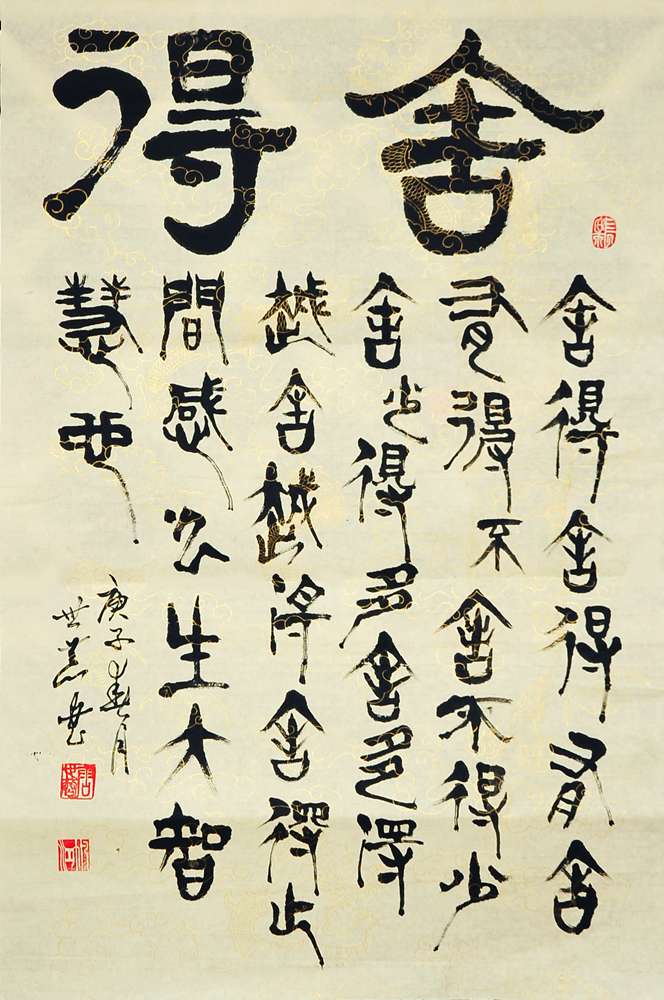 舍得
舍得舍得有舍
有得不舍不得少
舍少得多舍多得
越舍越得舍得止
間感公生大智
慧也
庚子春月
世